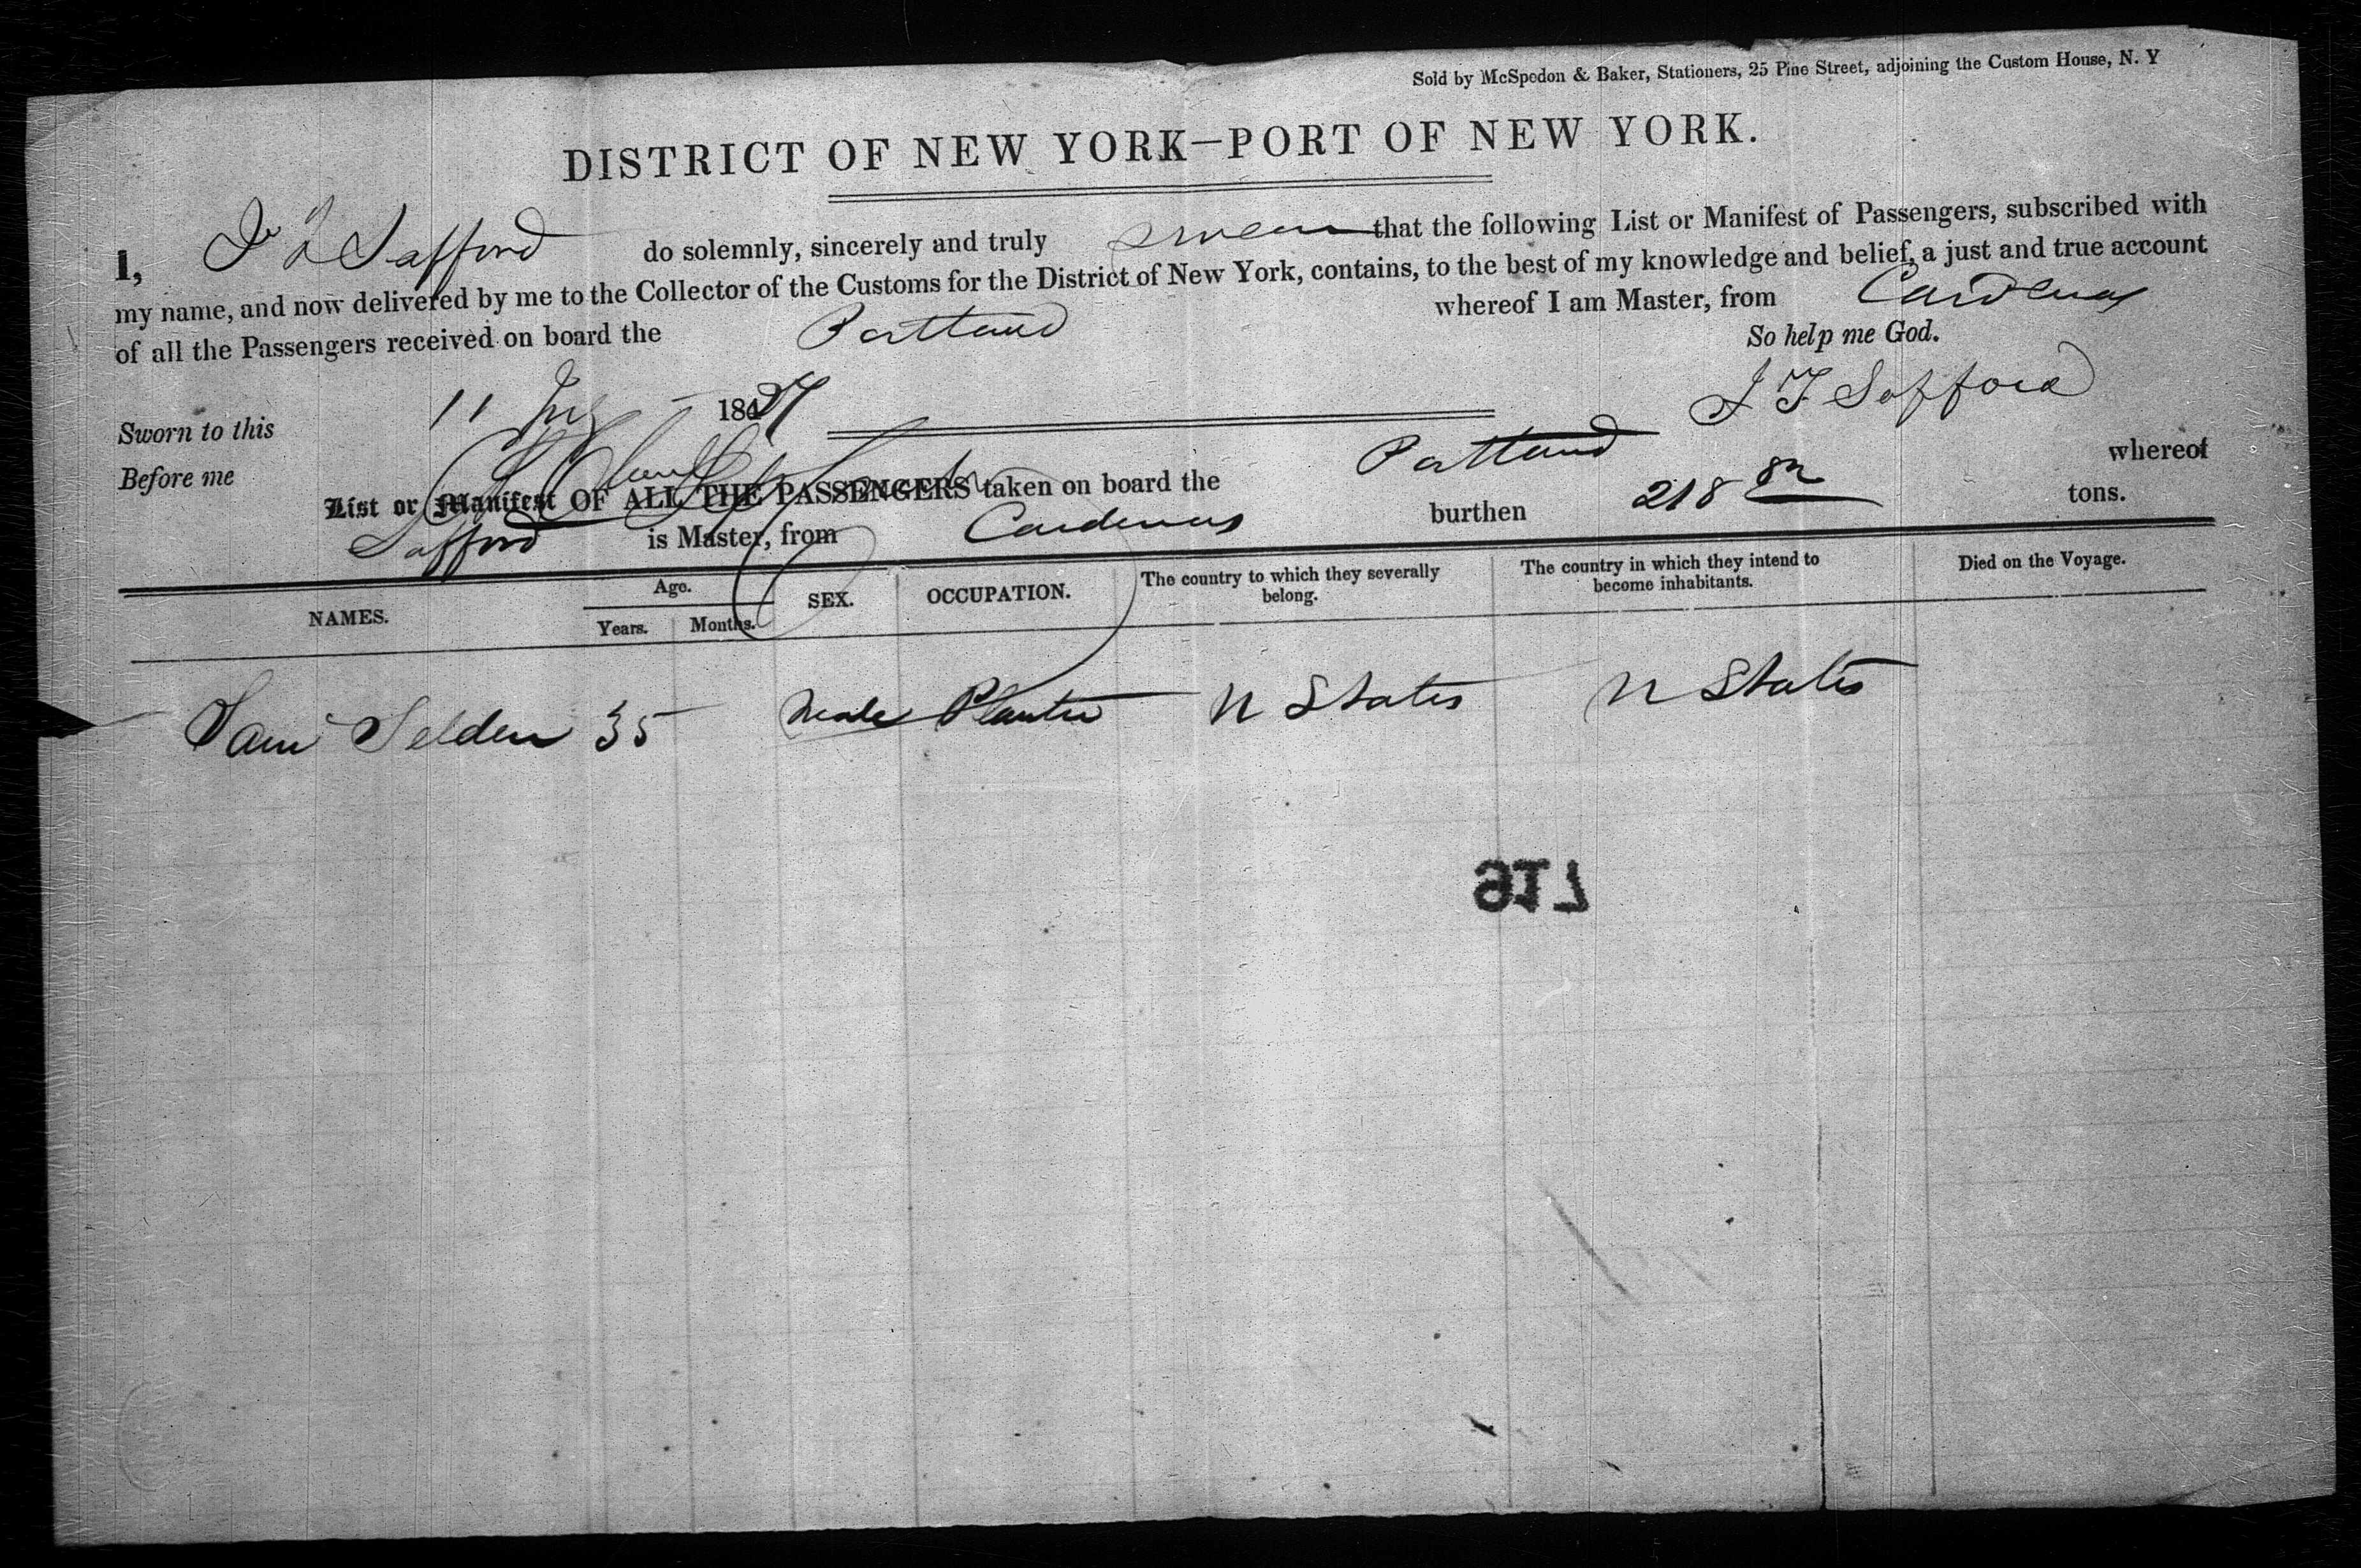 Sold by McSpedon & Baker, Stationers, 25 Pine Street, adjoining the Custom House, N. Y
DISTRICT OF NEW YORK—PORT OF NEW YORK.
I, Safford do solemnly, sincerely and truly swear that the following List or Manifest of Passengers, subscribed with
my name, and now delivered by me to the Collector of the Customs for the District of New York, contains, to the best of my knowledge and belief, a just and true account
of all the Passengers received on board the Portland whereof I am Master, from Cardenas
So help me God.
Sworn to this 11 184
J F Safford
Before me
List or Manifest OF ALL THE PASSENGERS taken on board the Portland whereof
Safford is Master, from Cardenas burthen 218 82 tons.
NAMES. Age. Years. Months. SEX. OCCUPATION. The country to which they severally belong. The country in which they intend to become inhabitants. Died on the Voyage.
Sam Selden 35 Male Planter U States U States
917